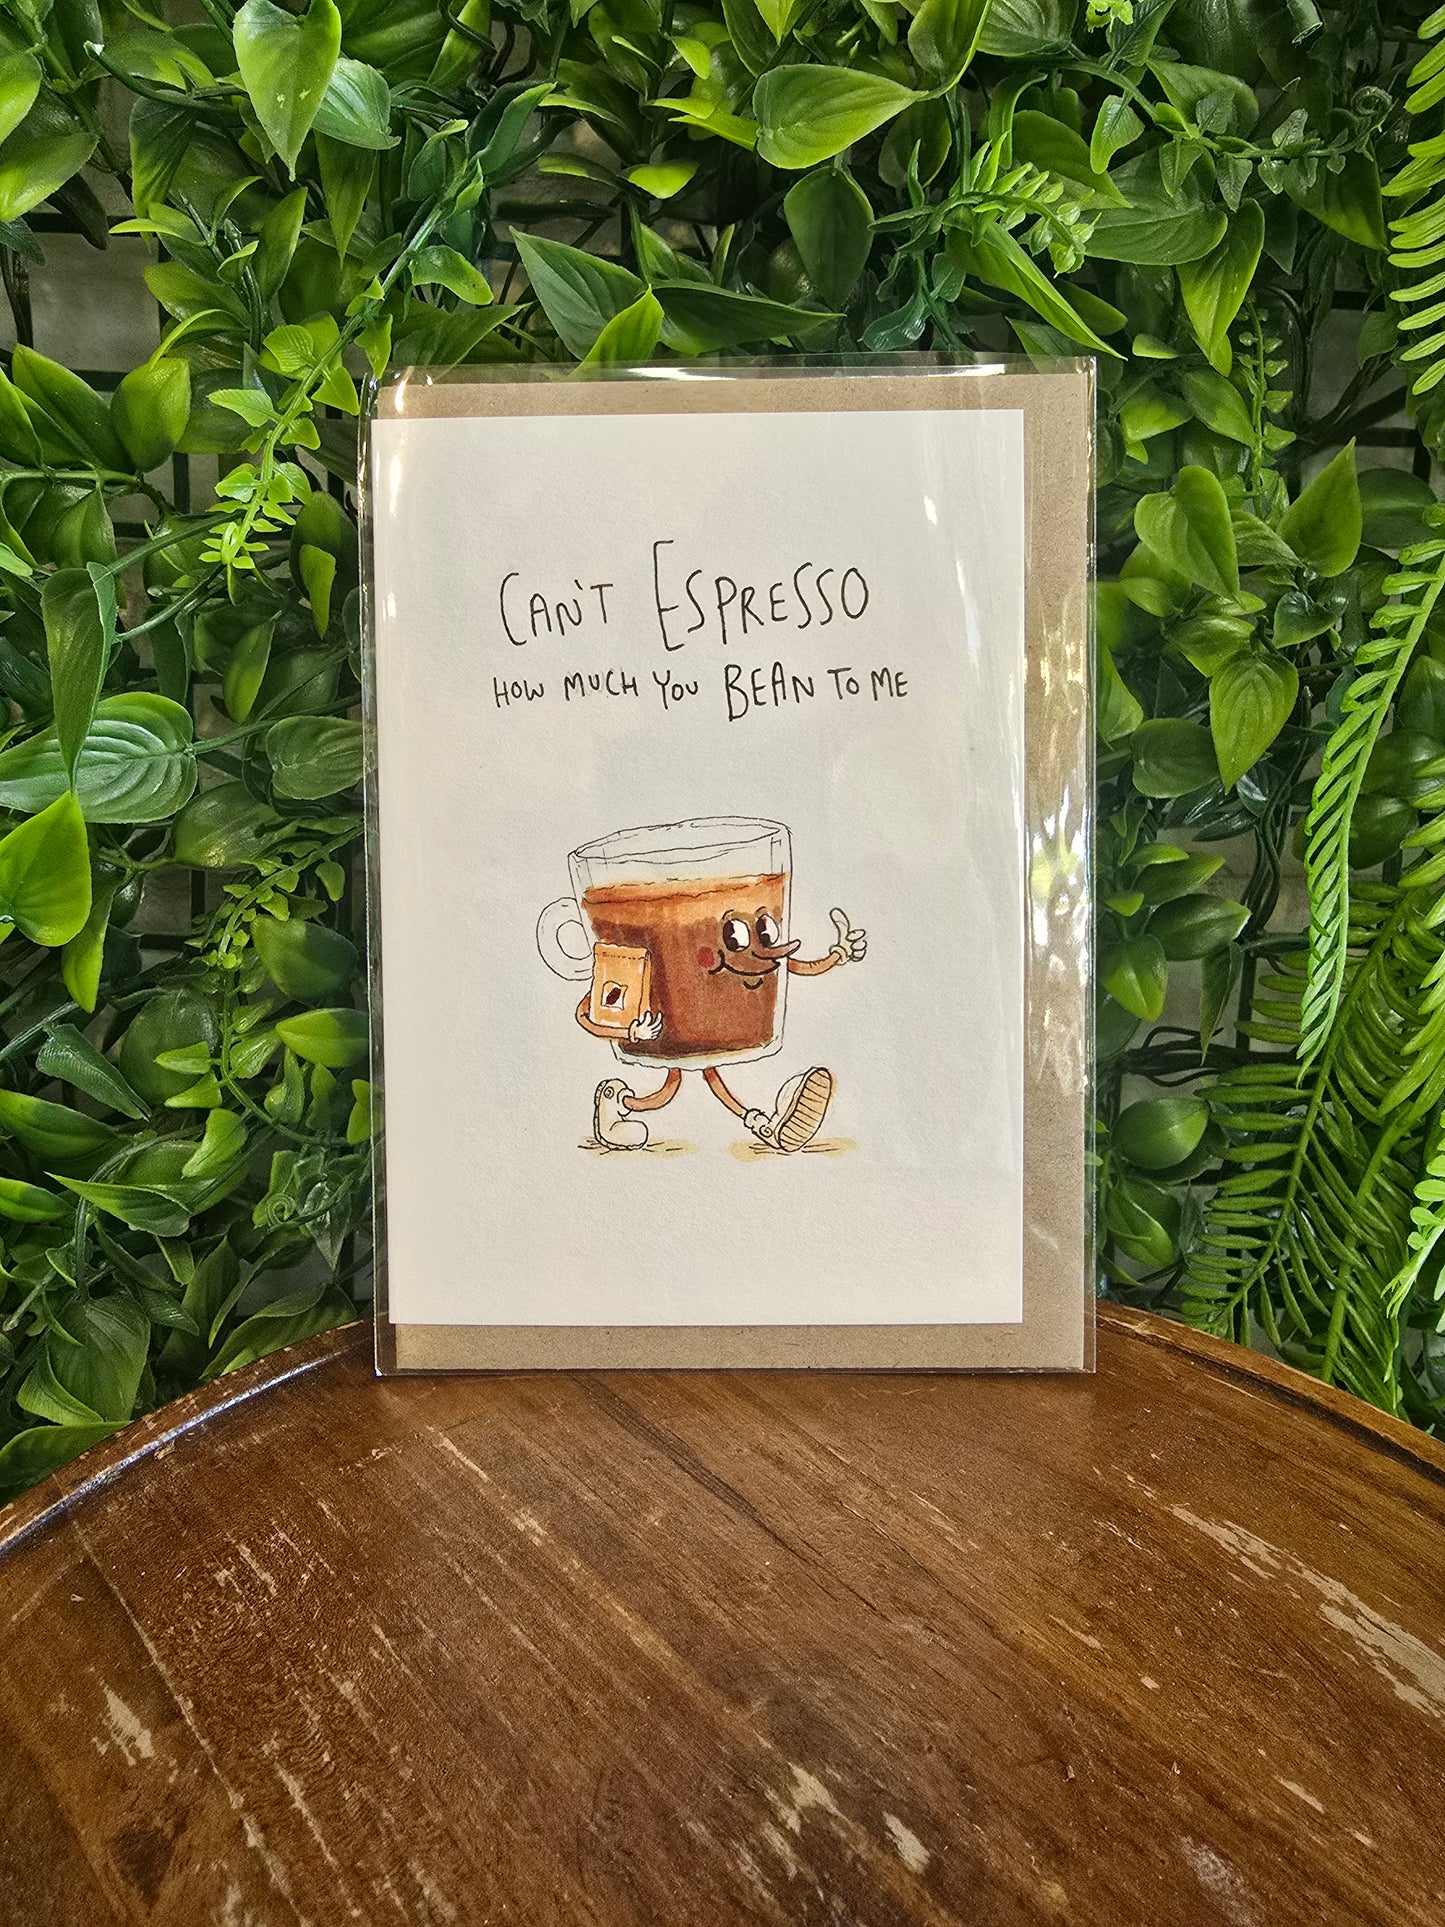 CAN'T ESPRESSO
HOW MUCH YOU BEAN TO ME